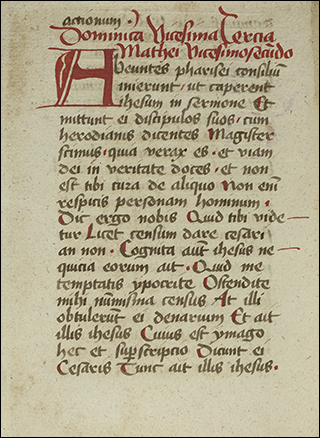 actionum ·
Dominica Vicesima Tercia
Mathei Vicesimosecundo
Abeuntes pharisei consiliū
inierunt · ut caperent
ihesum in sermone Et
mittunt ei discipulos suos · cum
herodianis dicentes Magister
scimus · quia verax es · et viam
dei in veritate doces · et non
est tibi cura de aliquo Non em̄
respicis personam hominum ·
Dic ergo nobis Quid tibi vide
tur Licet censum dare cesari
an non · Cognita aut̄ ihesus ne
quicia eorum ait · Quid me
temptatis ypocrite Ostendite
mihi numisma census At illi
obtulerunt ei denarium Et ait
illis ihesus Cuius est ymago
hec et sup̄scriptio Dicunt ei
Cesaris Tunc ait illis ihesus ·